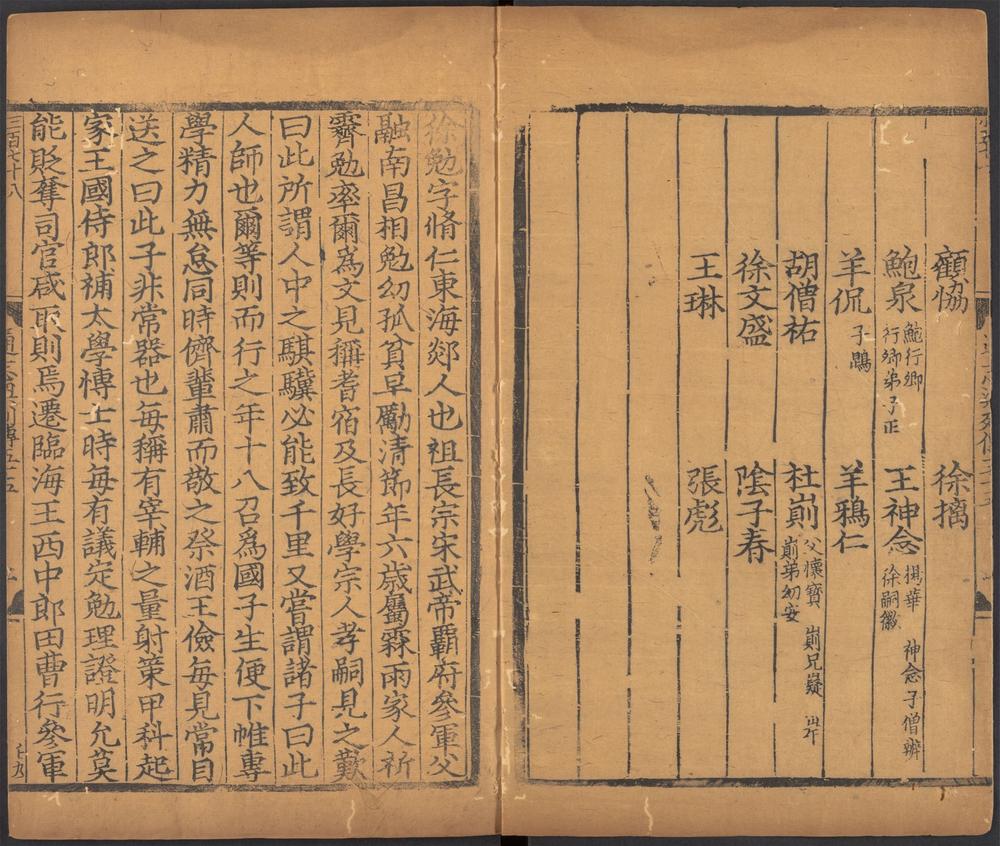 顧恊 徐摛
鮑泉 鮑行卿 行卿弟子正 王神念 楊華 神念子僧辨 徐嗣徽
羊侃 子鶤 羊鴉仁
胡僧祐 杜崱 父懷寳 崱兄嶷 崱弟幼安
徐文盛 陰子春
王琳 張彪
徐勉字脩仁東海郯人也祖長宗宋武帝霸府參軍父
融南昌相勉幼孤貧早勵清節年六歲屬霖雨家人祈
霽勉率爾爲文見稱耆宿及長好學宗人孝嗣見之歎
曰此所謂人中之騏驥必能致千里又嘗謂諸子曰此
人師也爾等則而行之年十八召爲國子生便下帷專
學精力無怠同時儕輩肅而敬之祭酒王儉每見常目
送之曰此子非常器也每稱有宰輔之量射策甲科起
家王國侍郎補太學博士時每有議定勉理證明允莫
能貶奪司官咸取則焉遷臨海王西中郎田曹行參軍
三百七十八